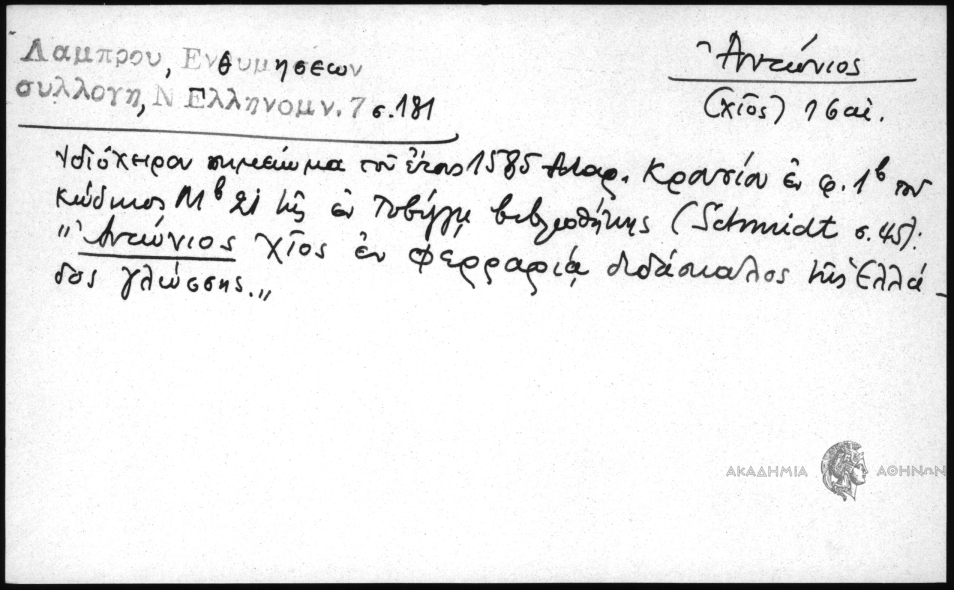 Λαμπρου, Ενθυμησεων
συλλογη, Ν Ελληνομν. 7 σ. 181
Ἀντώνιος
(Χῖος) 16 αἰ.
Ἰδιόχειρον σημείωμα τοῦ ἔτους 1585 Μαρ. Κρουσίου ἐν φ. 1β του
κώδικος Μb 21 τῆς ἐν Τυβίγγῃ βιβλιοθήκης (Schmidt σ. 45):
"Ἀντώνιος Χῖος ἐν Φερραρίᾳ διδάσκαλος τῆς Ἑλλά-
δος γλώσσης."
ΑΚΑΔΗΜΙΑ ΑΘΗΝΩΝ